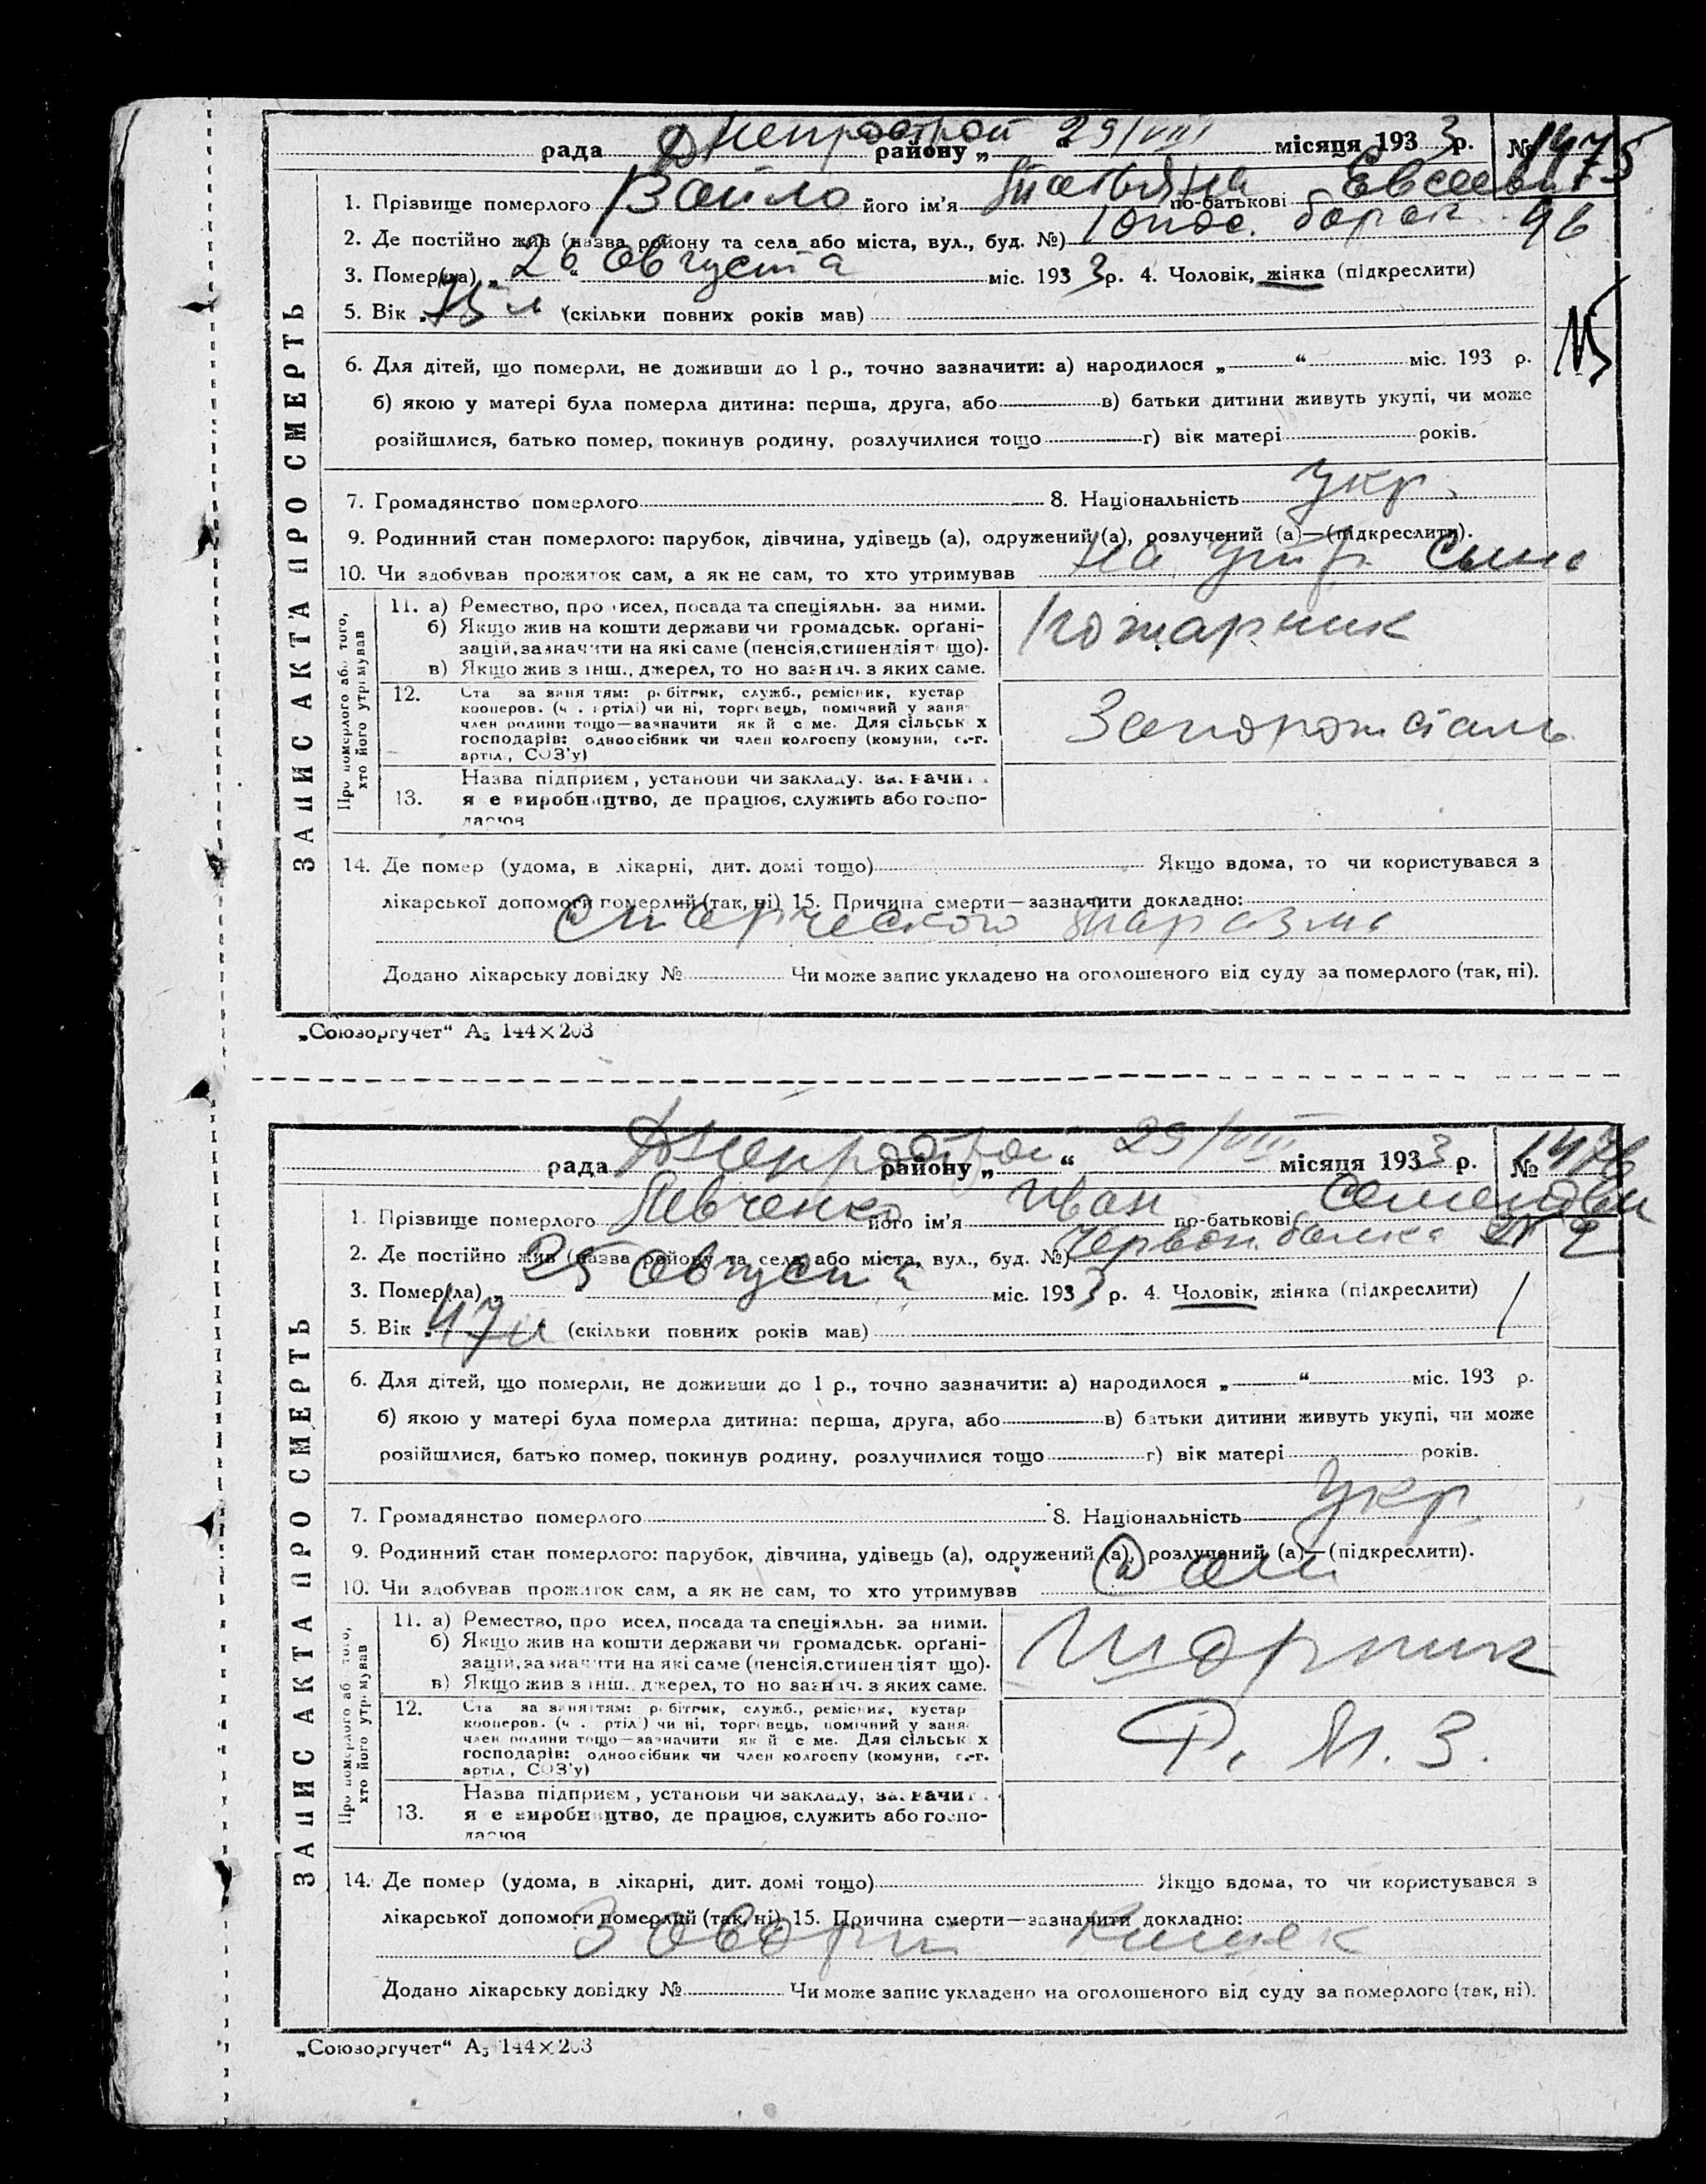 рада Днепрострой району „ “ 29/VIII місяця 1933 р. № 1475
1. Прізвище померлого його ім'я Татьяна по-батькові
2. Де постійно жив (назва району та села або міста, вул., буд. №) барак 96
3. Помер(ла) „ 26 “ августа міс. 1933 р. 4. Чоловік, жінка (підкреслити)
5. Вік л (скільки повних років мав)
6. Для дітей, що померли, не доживши до 1 р., точно зазначити: а) народилося „ “ міс. 193 р.
б) якою у матері була померла дитина: перша, друга, або в) батьки дитини живуть укупі, чи може
розійшлися, батько помер, покинув родину, розлучилися тощо г) вік матері років.
7. Громадянство померлого 8. Національність укр.
9. Родинний стан померлого: парубок, дівчина, удівець (а), одружений (а), розлучений (а)—(підкреслити).
10. Чи здобував прожиток сам, а як не сам, то хто утримував на сына
ЗАПИС АКТА ПРО СМЕРТЬ
Про померлого або того, хто його утримував
11. а) Ремество, про исел, посада та спеціяльн. за ними.
б) Якщо жив на кошти держави чи громадськ. орґані-
зацій, зазначити на які саме (пенсія, стипендія т що).
в) Якщо жив з інш., джерел, то но зазнач. з яких саме.
пожарник
12. Ста за заня тям: робітник, служб., ремісник, кустар
кооперов. (ч . ртілі) чи ні, торговець, помічний у заня
член родини тощо—зазначити як й с ме. Для сільськ х
господарів: одноосібник чи член колгоспу (комуни, с.-г.
артіл , СОЗ'у)
Запорожсталь
13. Назва підприєм , установи чи закладу, за. начи
я е виробництво, де працює, служить або госпо-
дарює
14. Де помер (удома, в лікарні, дит. домі тощо) Якщо вдома, то чи користувався з
лікарської допомоги померлий (так, ні) 15. Причина смерти—зазначити докладно:
старческого
Додано лікарську довідку № Чи може запис укладено на оголошеного від суду за померлого (так, ні).
„Союзоргучет“ А5 144×203
рада Днепрострой району „ “ 29/VIII місяця 1933 р. № 1476
1. Прізвище померлого його ім'я Иван по-батькові
2. Де постійно жив (назва району та села або міста, вул., буд. №) Червон. балка
3. Помер(ла) „ 25 августа міс. 1933 р. 4. Чоловік, жінка (підкреслити)
5. Вік „ 47 л (скільки повних років мав)
6. Для дітей, що померли, не доживши до 1 р., точно зазначити: а) народилося „ “ міс. 193 р.
б) якою у матері була померла дитина: перша, друга, або в) батьки дитини живуть укупі, чи може
розійшлися, батько помер, покинув родину, розлучилися тощо г) вік матері років.
7. Громадянство померлого 8. Національність укр
9. Родинний стан померлого: парубок, дівчина, удівець (а), одружений (а), розлучений (а)—(підкреслити).
10. Чи здобував прожиток сам, а як не сам, то хто утримував сам
ЗАПИС АКТА ПРО СМЕРТЬ
Про померлого або того, хто його утримував
11. а) Ремество, про исел, посада та спеціяльн. за ними.
б) Якщо жив на кошти держави чи громадськ. орґані-
зацій, зазначити на які саме (пенсія, стипендія т що).
в) Якщо жив з інш., джерел, то но зазнач. з яких саме.
Шорник
12. Ста за заняттям: робітник, служб., ремісник, кустар
кооперов. (ч . ртіл ) чи ні, торговець, помічний у заня
член родини тощо—зазначити як й с ме. Для сільськ х
господарів: одноосібник чи член колгоспу (комуни, с.-г.
артіл , СОЗ'у)
13. Назва підприєм , установи чи закладу, за. начи
я е виробництво, де працює, служить або госпо-
дарює
14. Де помер (удома, в лікарні, дит. домі тощо) Якщо вдома, то чи користувався з
лікарської допомоги померлий (так, ні) 15. Причина смерти—зазначити докладно:
Заворот Кишек
Додано лікарську довідку № Чи може запис укладено на оголошеного від суду за померлого (так, ні).
„Союзоргучет“ А5 144×203